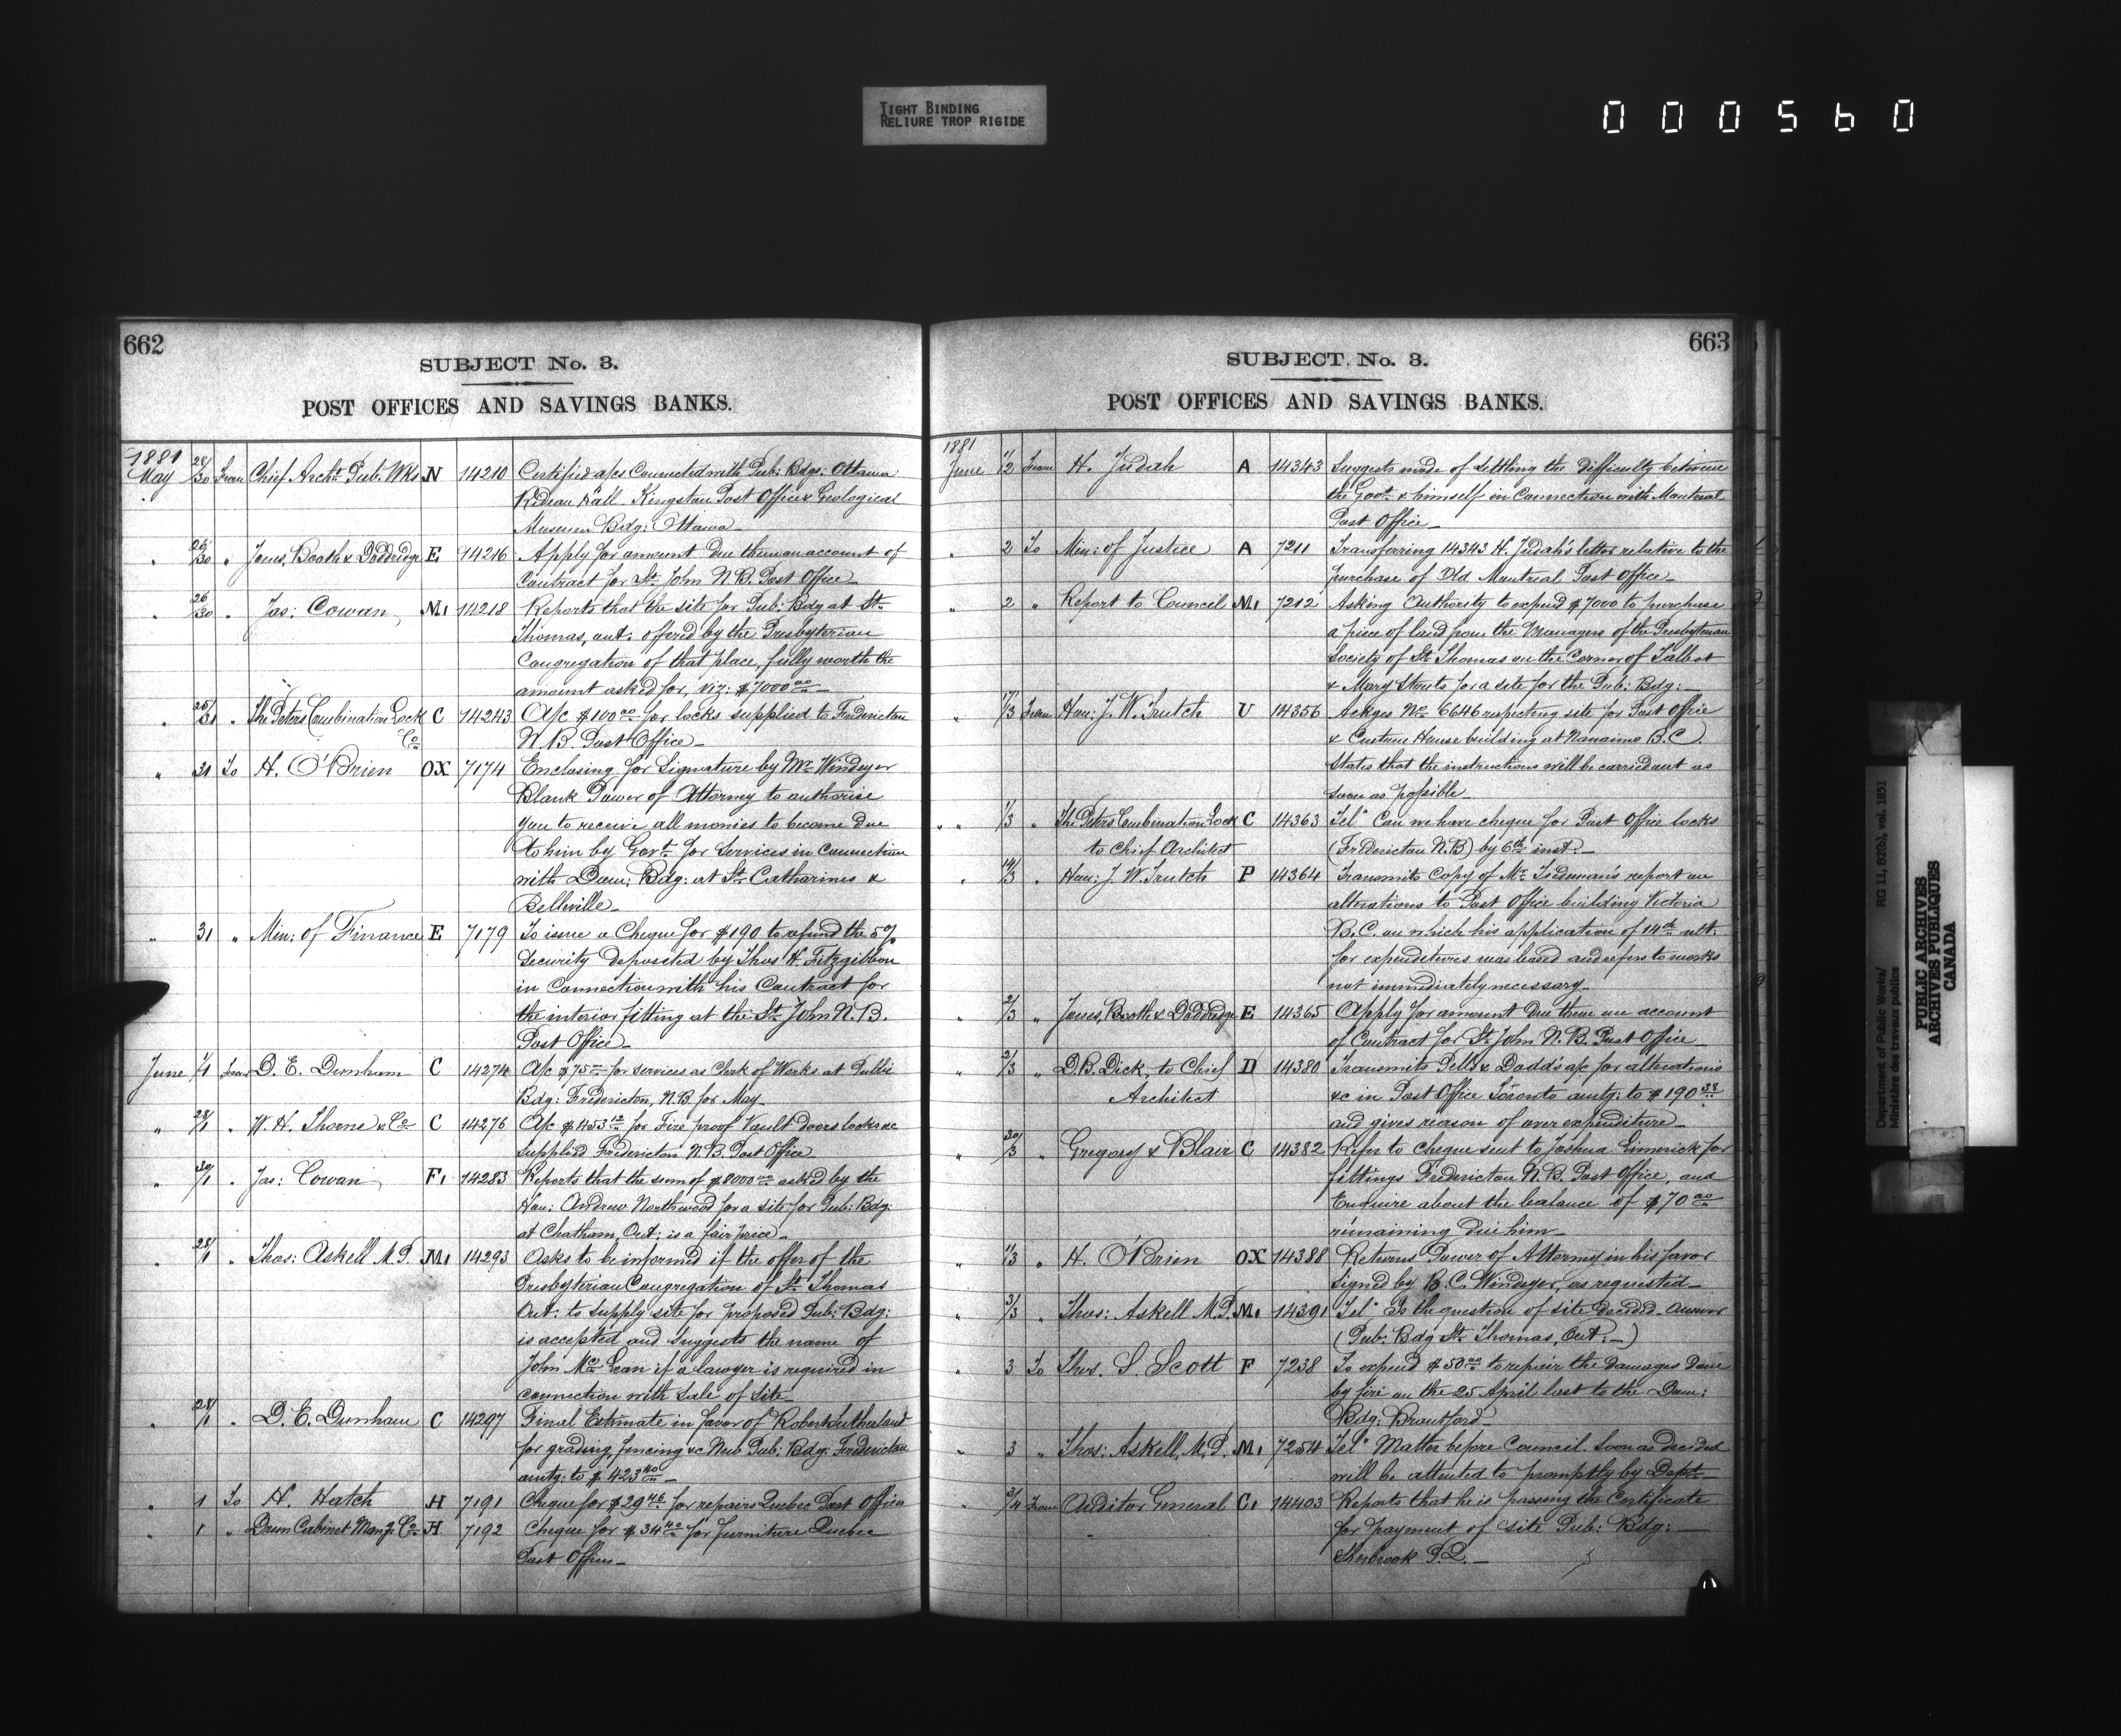 TIGHT BINDING
RELIURE TROP RIGIDE
000560
662
SUBJECT No. 3.
POST OFFICES AND SAVINGS BANKS.
1881
May 28/30 From Chief Archt. Pub: Wks N 14210 Certified a/cs connected with Pub: Bdgs: Ottawa
Rideau Hall Kingston Post Office & Geological
Museum Bdg: Ottawa
" 26/30 " Jones, Booth & Doddridge E 14216 Apply for amount due them on account of
Contract for St. John N.B. Post Office
" 26/30 " Jas: Cowan M1 14218 Reports that the site for Pub: Bdg at St.
Thomas, Ont: offered by the Presbyterian
Congregation of that place, fully worth the
amount asked for, viz: $7000 00
" 25/31 " The Peters Combination Lock C 14243 A/c $100 00 for locks supplied to Fredericton
Co N.B. Post Office
" 31 To H. O'Brien OX 7174 Enclosing for signature by Mr. Windeyer
Blank Power of Attorney to authorise
you to receive all monies to become due
to him by Govt. for services in connection
with Dom: Bdg: at St. Catharines &
Belleville
" 31 " Min: of Finance E 7179 To issue a Cheque for $190 to refund the 5%
security deposited by Thos H. Fitzgibbon
in connection with his Contract for
the interior fitting at the St. John N.B.
Post Office
June 1/1 From D. E. Dunham C 14274 A/c $75 for services as Clerk of Works at Public
Bdg: Fredericton, N.B for May
" 28/1 " W. H. Thorne & Co C 14276 A/c $453 12 for Fire proof Vault doors locks &c
supplied Fredericton N.B. Post Office
" 30/1 " Jas: Cowan F1 14283 Reports that the sum of $8000 00 asked by the
Hon: Andrew Northwood for a site for Pub: Bdg:
at Chatham, Ont: is a fair price
" 28/1 " Thos: Askell M.P. M1 14293 Asks to be informed if the offer of the
Presbyterian Congregation of St. Thomas
Ont: to supply site for proposed Pub: Bdg:
is accepted and suggests the name of
John McLean if a lawyer is required in
connection with sale of site
" 28/1 " D. E. Dunham C 14297 Final Estimate in favor of Robert Sutherland
for grading, fencing &c New Pub: Bdg: Fredericton
amtg: to $423 40
" 1 To H. Hatch H 7191 Cheque for $29 46 for repairs Quebec Post Office
" 1 " Drum Cabinet Manfg Co H 7192 Cheque for $34 40 for furniture Quebec
Post Office
663
SUBJECT. No. 3.
POST OFFICES AND SAVINGS BANKS.
1881
June 1/2 From H. Judah A 14343 Suggests mode of settling the difficulty between
the Govt. & himself in connection with Montreal
Post Office
" 2 To Min: of Justice A 7211 Transferring 14343 H. Judah's letter relative to the
purchase of Old Montreal Post Office
" 2 " Report to Council M1 7212 Asking Authority to expend $7000 to purchase
a piece of land from the Managers of the Presbyterian
Society of St. Thomas on the Corner of Talbot
& Mary Streets for a site for the Pub: Bdg:
" 17/3 From Hon: J. W. Trutch U 14356 Ackges No 6646 respecting site for Post Office
& Custom House building at Nanaimo B.C.
States that the instructions will be carried out as
soon as possible
" " 1/3 " The Peters Combination Lock C 14363 Tel" Can we have cheque for Post Office locks
to Chief Architect (Fredericton N.B) by 6th inst.
" 14/3 " Hon: J. W. Trutch P 14364 Transmits Copy of Mr. Tiedeman's report on
alterations to Post Office building Victoria
B.C. on which his application of 14th ult.
for expenditures was based and refers to works
not immediately necessary
" 2/3 " Jones, Booth & Doddridge E 14365 Apply for amount due them on account
of Contract for St. John N.B. Post Office
" 2/3 " D.B. Dick, to Chief D 14380 Transmits Pells & Dodd's a/c for alterations
Architect &c in Post Office Toronto amtg: to $190 38
and gives reason of over expenditure
" 30/3 " Gregory & Blair C 14382 Refer to cheque sent to Joshua Limerick for
fittings Fredericton N.B. Post Office, and
Enquire about the balance of $70 00
remaining due him
" 1/3 " H. O'Brien OX 14388 Returns Power of Attorney in his favor
signed by R. C. Windeyer, as requested
" 3/3 " Thos: Askell M.P. M1 14391 Tel" Is the question of site decided. Answer
(Pub: Bdg St. Thomas, Ont:)
" 3 To Thos. S. Scott F 7238 To expend $50 00 to repair the damages done
by fire on the 25 April last to the Dom:
Bdg: Brantford
" 3 " Thos: Askell, M.P. M1 7254 Tel" Matter before Council. Soon as decided
will be attended to promptly by Dept.
" 2/4 From Auditor General C1 14403 Reports that he is passing the Certificate
for payment of site Pub: Bdg:
Sherbrook P.Q.
Department of Public Works/
Ministère des travaux publics
RG 11, B2(b), vol. 1851
PUBLIC ARCHIVES
ARCHIVES PUBLIQUES
CANADA